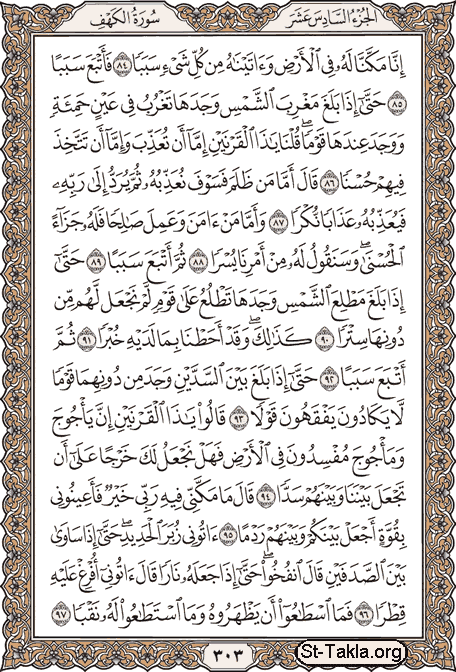 الجزء السادس عشر
سورة الكهف
إِنَّا مَكَّنَّا لَهُۥ فِى ٱلْأَرْضِ وَءَاتَيْنَٰهُ مِن كُلِّ شَىْءٍ سَبَبًا ٨٤ فَأَتْبَعَ سَبَبًا
٨٥ حَتَّىٰٓ إِذَا بَلَغَ مَغْرِبَ ٱلشَّمْسِ وَجَدَهَا تَغْرُبُ فِى عَيْنٍ حَمِئَةٍ
وَوَجَدَ عِندَهَا قَوْمًا ۗ قُلْنَا يَٰذَا ٱلْقَرْنَيْنِ إِمَّآ أَن تُعَذِّبَ وَإِمَّآ أَن تَتَّخِذَ
فِيهِمْ حُسْنًا ٨٦ قَالَ أَمَّا مَن ظَلَمَ فَسَوْفَ نُعَذِّبُهُۥ ثُمَّ يُرَدُّ إِلَىٰ رَبِّهِۦ
فَيُعَذِّبُهُۥ عَذَابًا نُّكْرًا ٨٧ وَأَمَّا مَنْ ءَامَنَ وَعَمِلَ صَٰلِحًا فَلَهُۥ جَزَآءً
ٱلْحُسْنَىٰ ۖ وَسَنَقُولُ لَهُۥ مِنْ أَمْرِنَا يُسْرًا ٨٨ ثُمَّ أَتْبَعَ سَبَبًا ٨٩ حَتَّىٰٓ
إِذَا بَلَغَ مَطْلِعَ ٱلشَّمْسِ وَجَدَهَا تَطْلُعُ عَلَىٰ قَوْمٍ لَّمْ نَجْعَل لَّهُم مِّن
دُونِهَا سِتْرًا ٩٠ كَذَٰلِكَ وَقَدْ أَحَطْنَا بِمَا لَدَيْهِ خُبْرًا ٩١ ثُمَّ
أَتْبَعَ سَبَبًا ٩٢ حَتَّىٰٓ إِذَا بَلَغَ بَيْنَ ٱلسَّدَّيْنِ وَجَدَ مِن دُونِهِمَا قَوْمًا
لَّا يَكَادُونَ يَفْقَهُونَ قَوْلًا ٩٣ قَالُوا۟ يَٰذَا ٱلْقَرْنَيْنِ إِنَّ يَأْجُوجَ
وَمَأْجُوجَ مُفْسِدُونَ فِى ٱلْأَرْضِ فَهَلْ نَجْعَلُ لَكَ خَرْجًا عَلَىٰٓ أَن
تَجْعَلَ بَيْنَنَا وَبَيْنَهُمْ سَدًّا ٩٤ قَالَ مَا مَكَّنِّى فِيهِ رَبِّى خَيْرٌ فَأَعِينُونِى
بِقُوَّةٍ أَجْعَلْ بَيْنَكُمْ وَبَيْنَهُمْ رَدْمًا ٩٥ ءَاتُونِى زُبَرَ ٱلْحَدِيدِ ۖ حَتَّىٰٓ إِذَا سَاوَىٰ
بَيْنَ ٱلصَّدَفَيْنِ قَالَ ٱنفُخُوا۟ ۖ حَتَّىٰٓ إِذَا جَعَلَهُۥ نَارًا قَالَ ءَاتُونِىٓ أُفْرِغْ عَلَيْهِ
قِطْرًا ٩٦ فَمَا ٱسْطَٰعُوٓا۟ أَن يَظْهَرُوهُ وَمَا ٱسْتَطَٰعُوا۟ لَهُۥ نَقْبًا ٩٧
٣٠٣
St-Takla.org